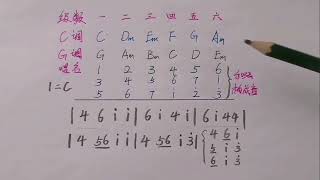 级数 一 二 三 四 五 六
C调 C Dm Em F G Am
G调 G Am Bm C D Em
唱名 1 2 3 4 5 6
1=C 3 4 5 6 7 1
5 6 7 i 2 3
和弦构成音
| 4 6 i i | 6 i 4 i | 6 i 4 4 |
| 4 56 i i | 4 56 i 3 |
4 6 i
5 i 3
6 i 3